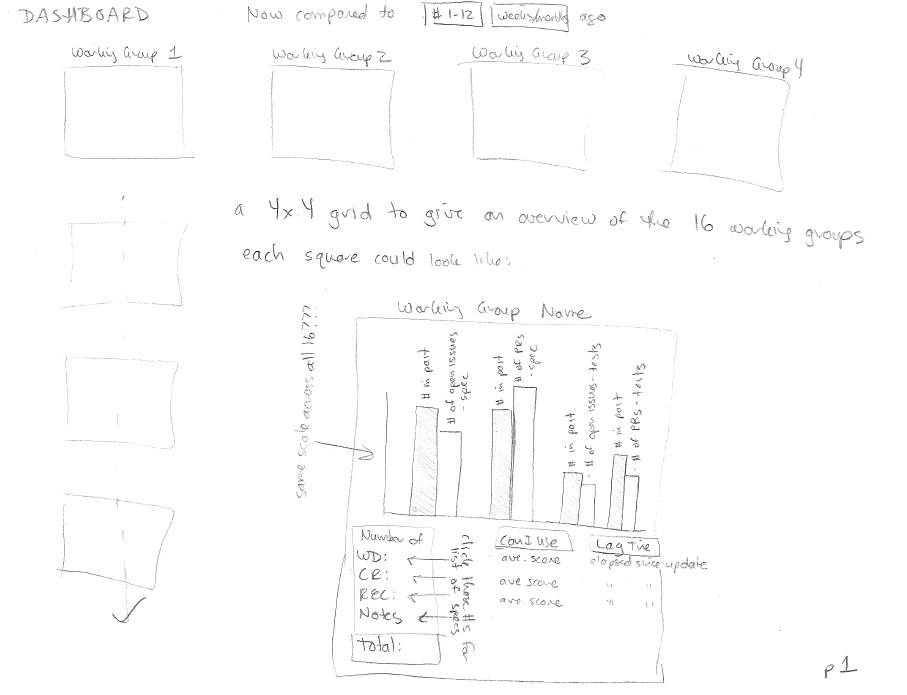 DASHBOARD
Now compared to # 1-12 weeks/months ago
Working Group 1
Working Group 2
Working Group 3
Working Group 4
a 4x4 grid to give an overview of the 16 working groups
each square could look like:
Working Group Name
same scale across all 16???
# in past
# of open issues
- spec
# in past
# of PRs
- spec
# in past
# of open issues - tests
# in past
# of PRs - tests
Number of
WD:
CR:
REC:
Notes
Total:
click those #s for
list of specs
CanIUse
ave. score
ave score
ave. score
Lag Time
elapsed since update
" "
" "
p1